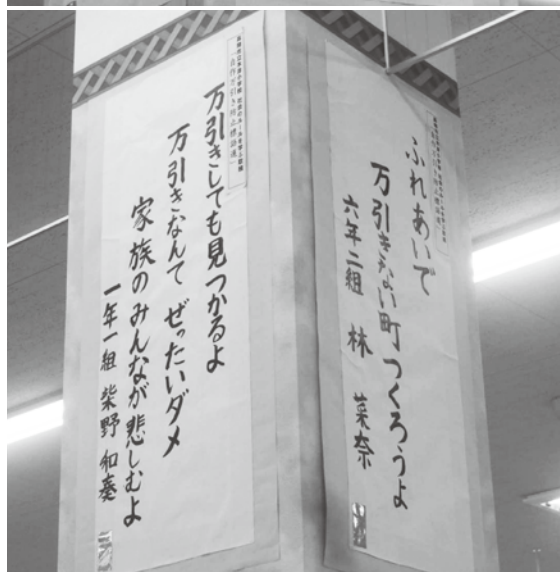 万引きしても見つかるよ
万引きなんて ぜったいダメ
家族のみんなが悲しむよ
一年一組 柴野 和奏
ふれあいで
万引きない町つくろうよ
六年二組 林 菜奈